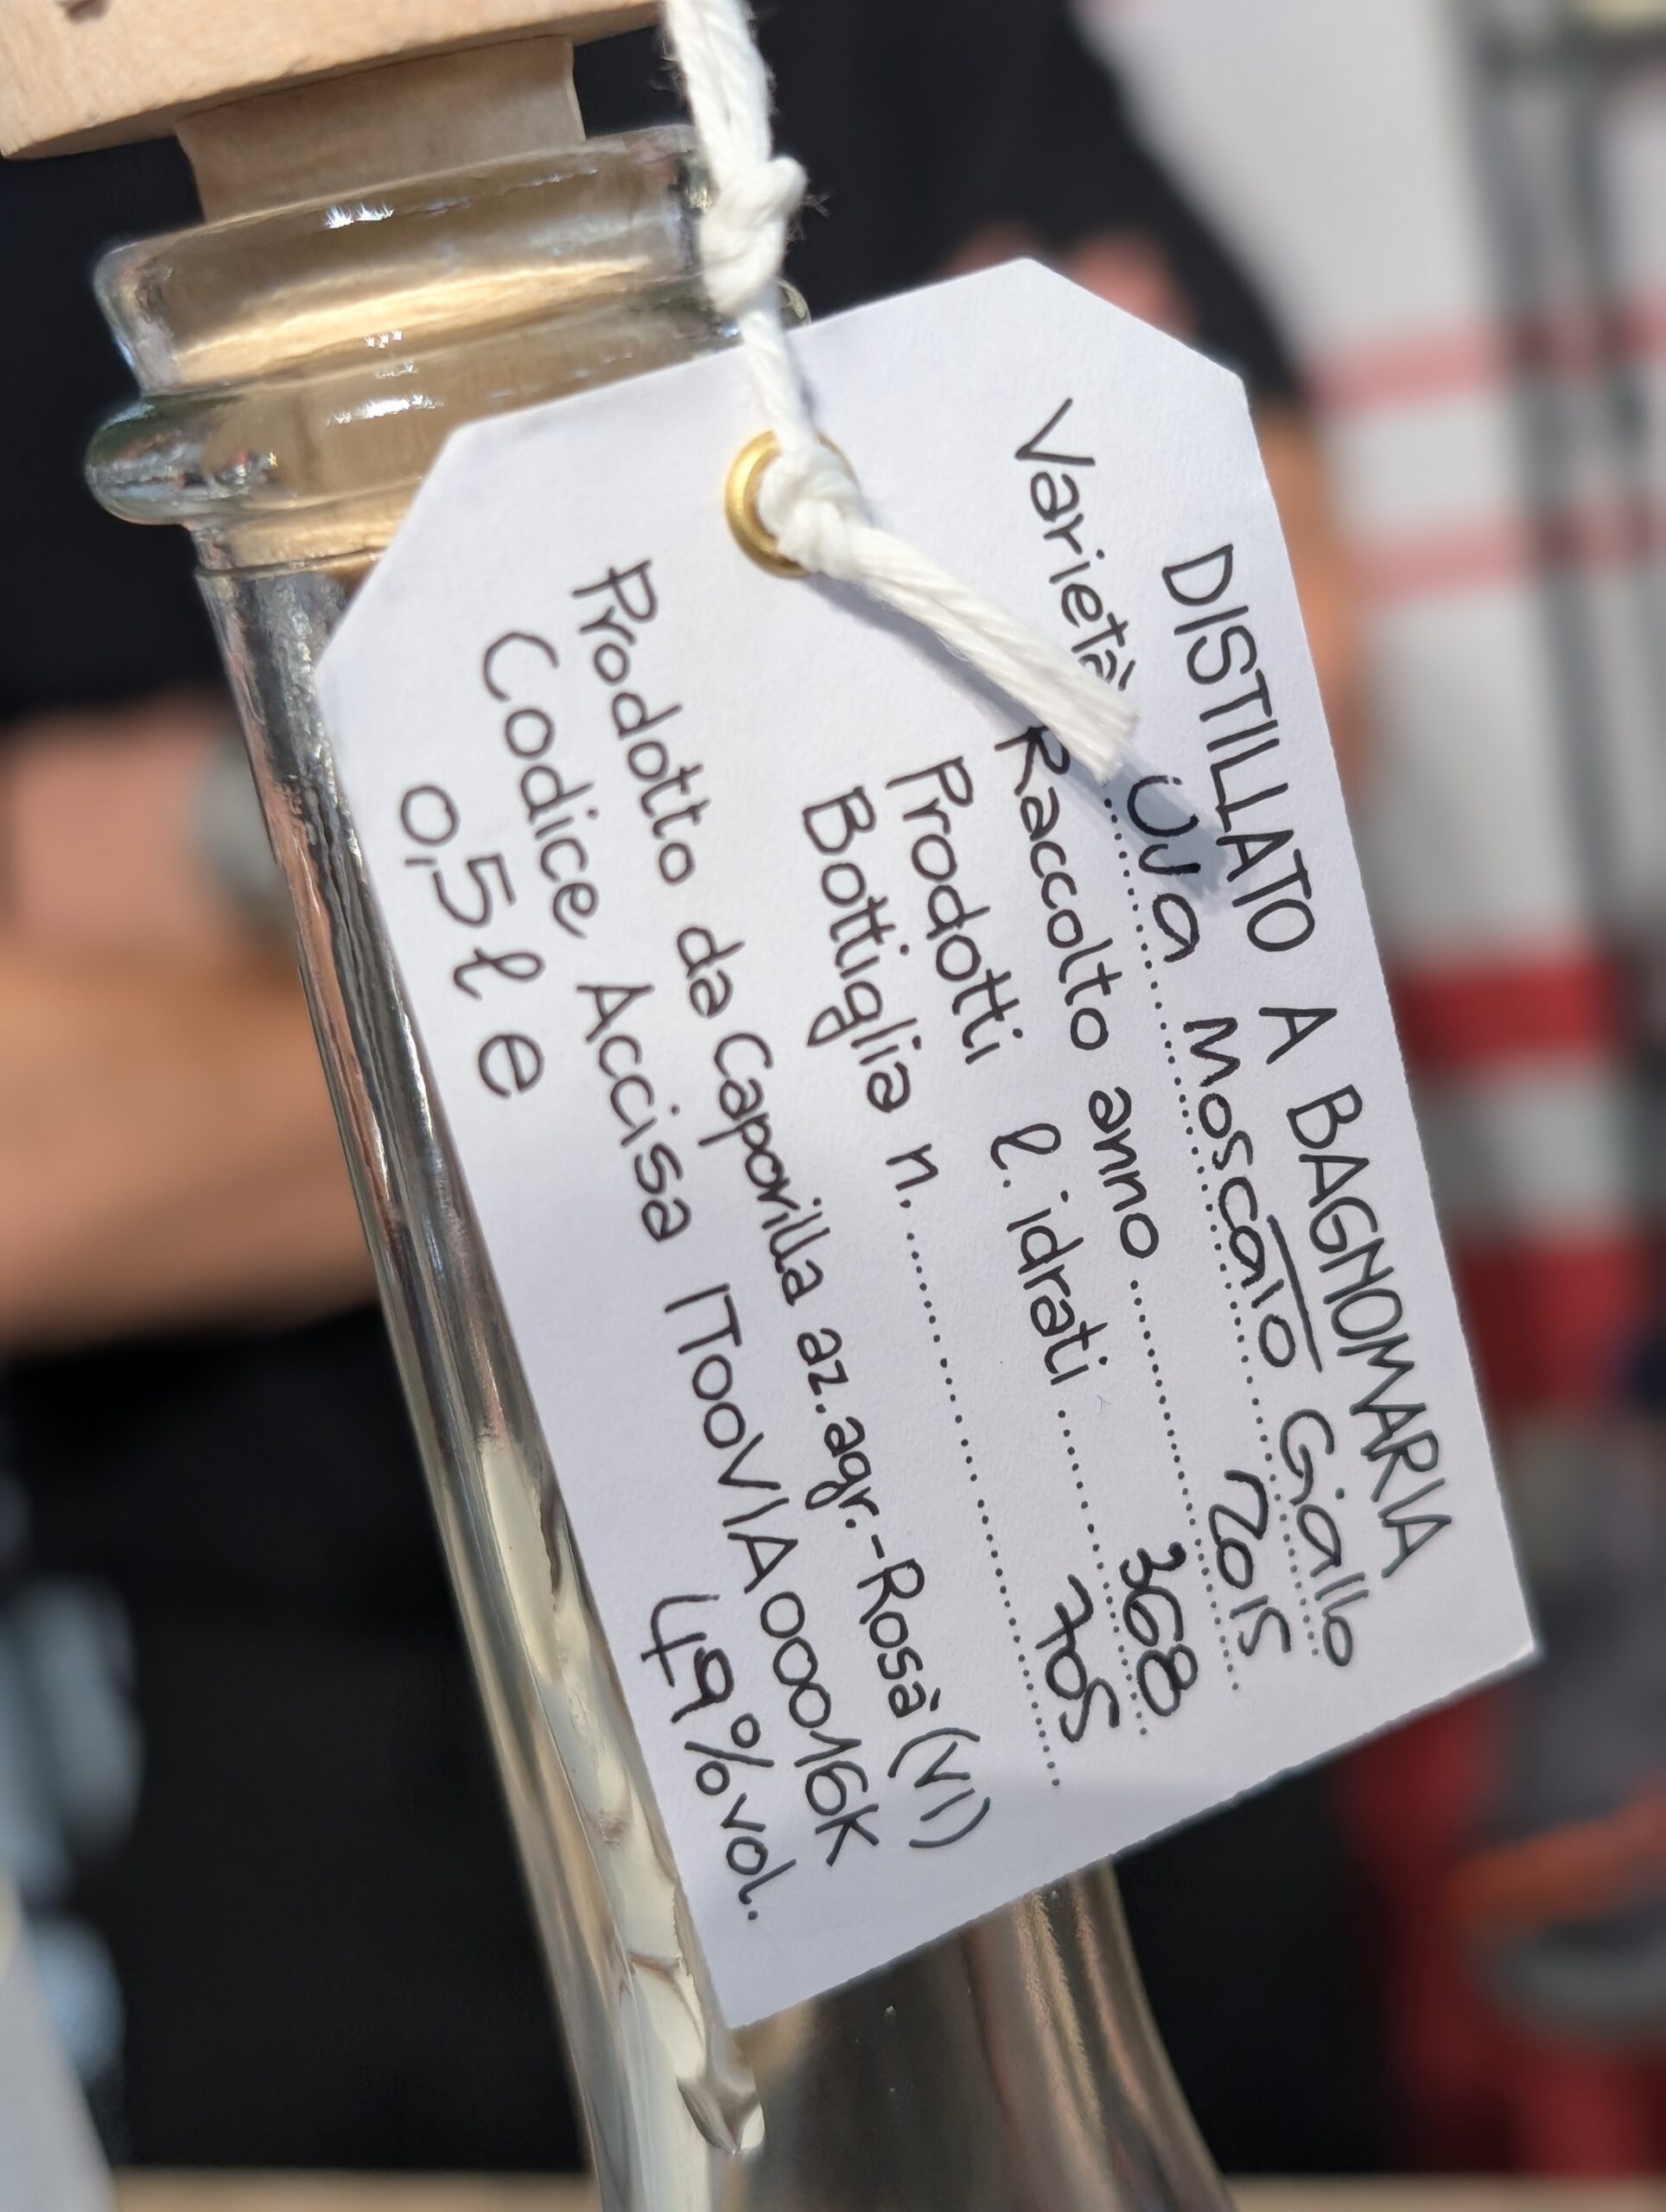 DISTILLATO A BAGNOMARIA
Varietà Uva Moscato Giallo
Raccolto anno 2015
Prodotti l. idrati 368
Bottiglia n. 705
Prodotto da Capovilla az.agr.-Rosà (VI)
Codice Accisa IT00VIA00016K
0,5 l e 49%vol.